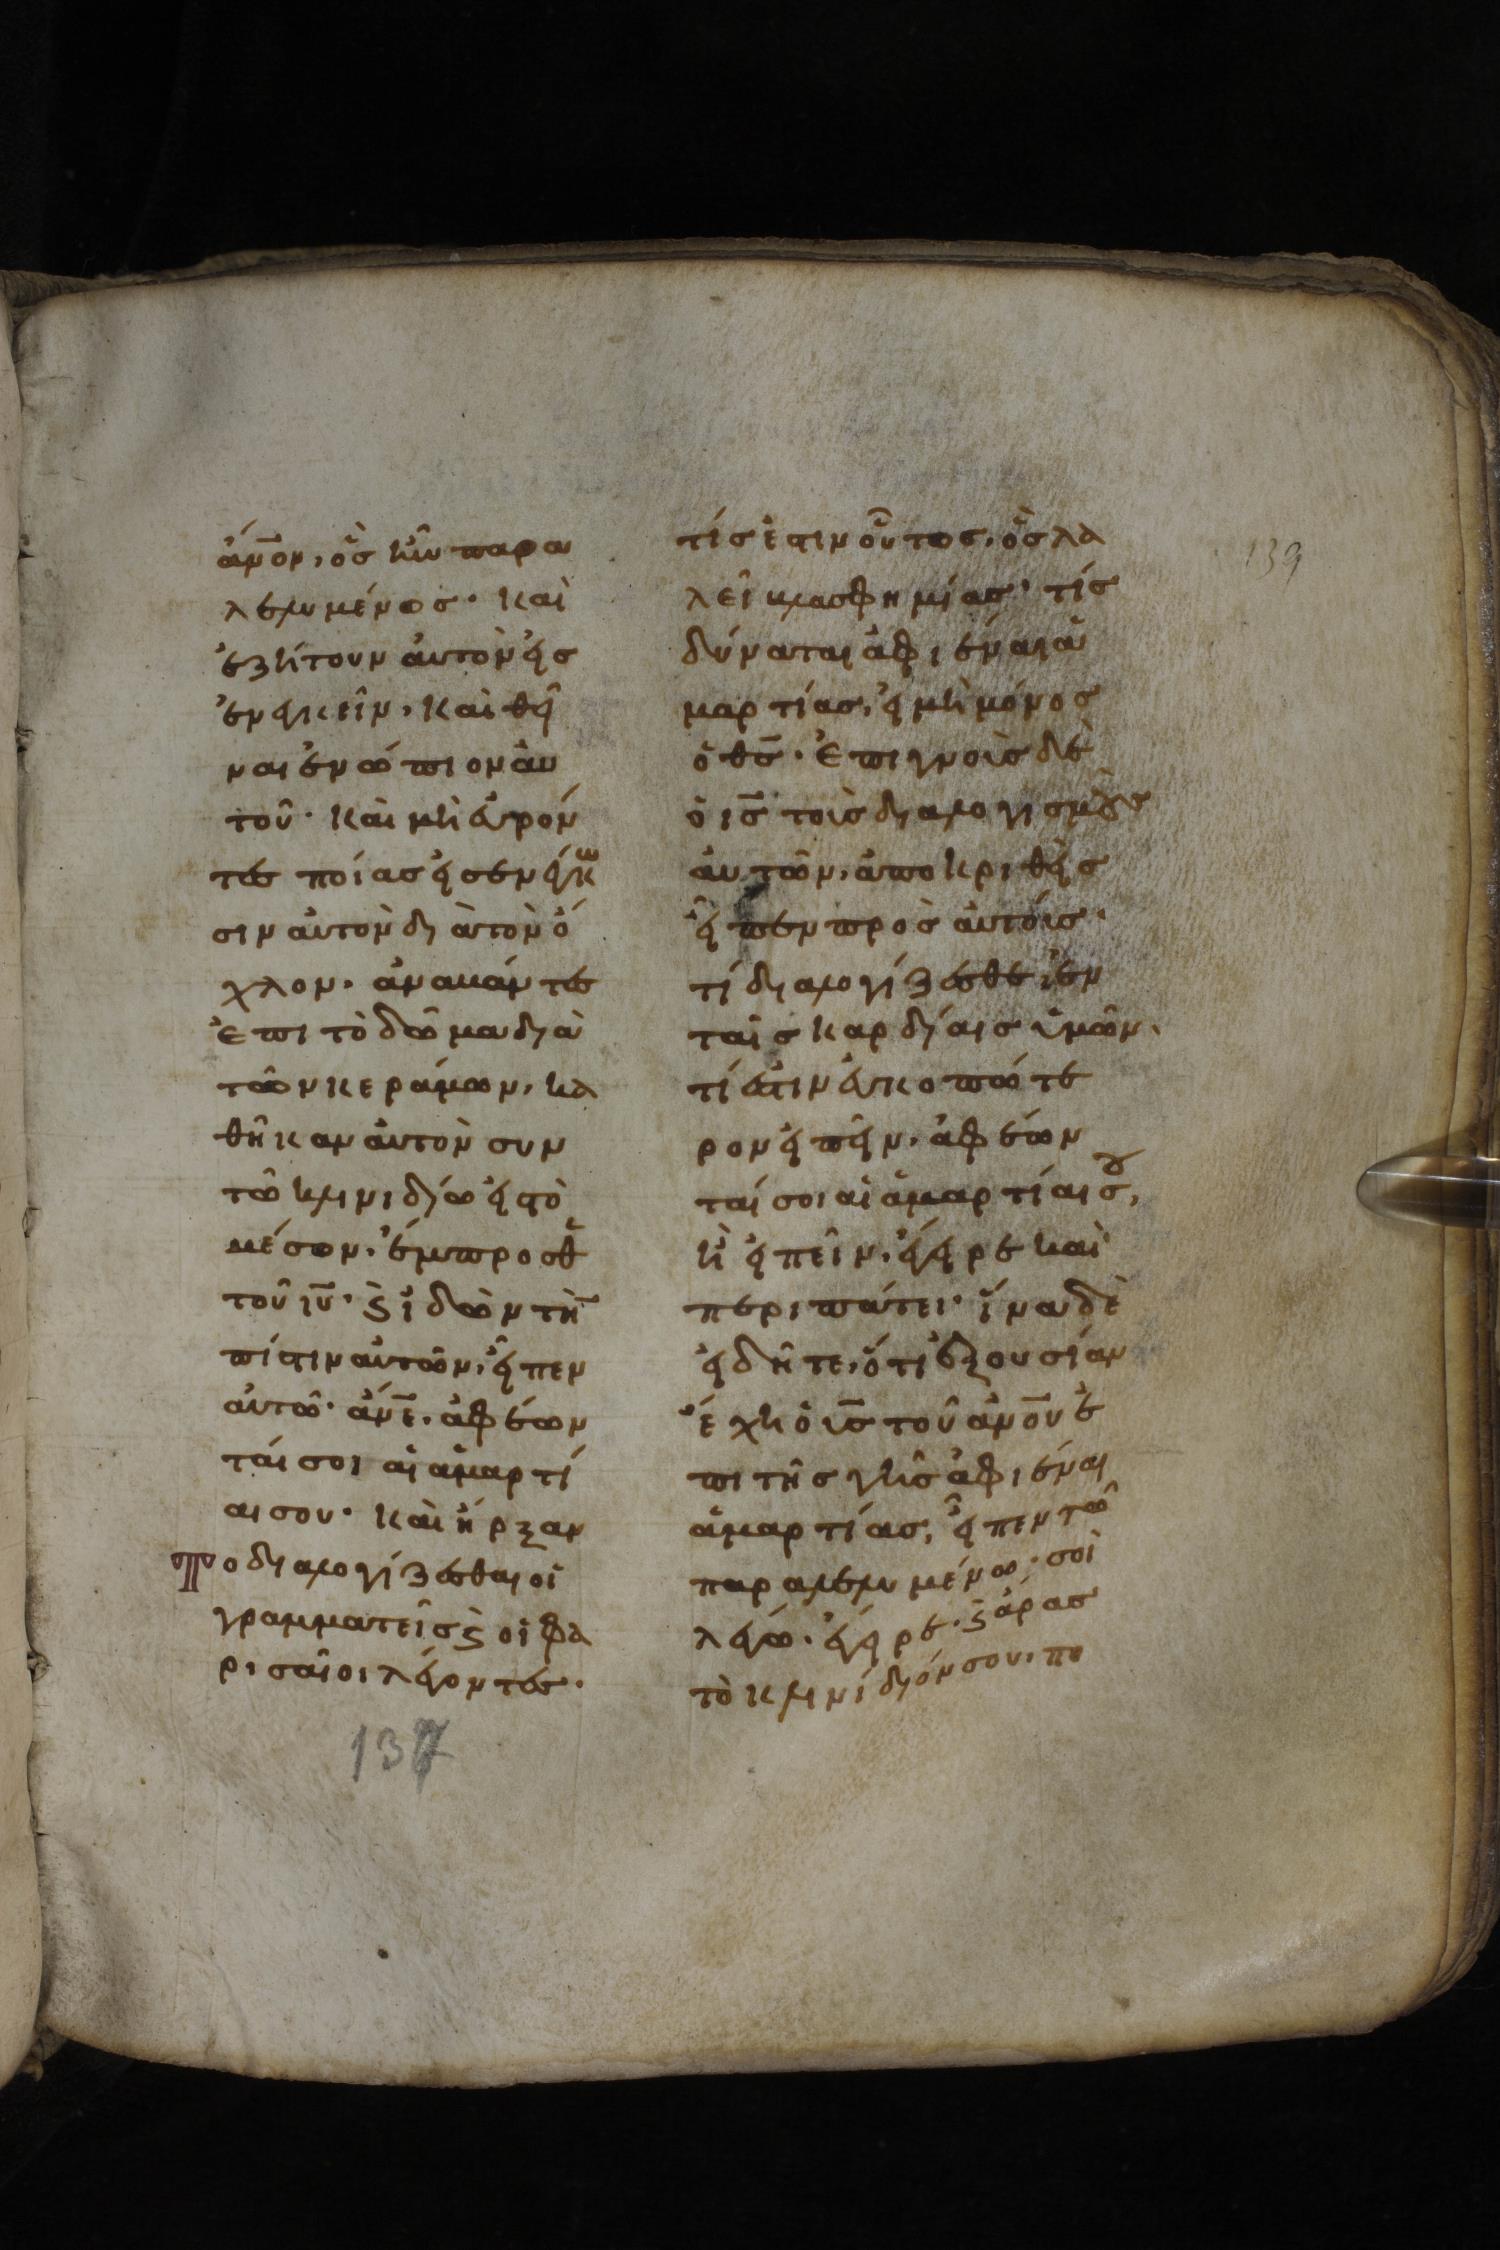 ἄν̅ον, ὃς ἦν παρα
λελυμένος· καὶ
ἐζήτουν αὐτὸν εἰσ
ἐνεγκεῖν, καὶ θεῖ
ναι ἐνώπιον αὐ
τοῦ· καὶ μὴ εὑρόν
τες ποίας εἰσενέγκω
σιν αὐτὸν διὰ τὸν ὄ
χλον, ἀναβάντες
ἐπι τὸ δῶμα διὰ
τῶν κεράμων, κα
θῆκαν αὐτὸν συν
τῶ κλινιδίω εἰς τὸ
μέσον, ἔμπροσθ
τοῦ ιυ̅· ϛ ἰδὼν τὴ̅
πίστιν αὐτῶν, εἶπεν
αὐτῶ· ἄν̅ε, ἀφέων
ταί σοι αἱ ἁμαρτί
αι σου· καὶ ἤρξαν
το διαλογίζεσθαι οἱ
γραμματεῖς ϛ οἱ φα
ρισαῖοι λέγοντες·
τίς ἐστιν οὗτος, ὃς λα
λεῖ βλασφημίας· τίς
δύναται ἀφιέναι ἁ
μαρτίας, εἰ μὴ μόνος
ὁ θς̅· ἐπιγνοὺς δὲ
ὁ ις̅ τοὺς διαλογισμοὺς
αὐτῶν, ἀποκριθεὶς
εἶπεν πρὸς αὐτούς·
τί διαλογίζεσθε ἐν
ταῖς καρδίαις ὑμῶν,
τί ἐστιν εὐκοπώτε
ρον εἰπεῖν, ἀφέων
ταί σοι αἱ ἁμαρτίαι σου,
ἢ εἰπεῖν, ἔγειρε καὶ
περιπάτει· ἵνα δὲ
εἰδῆτε, ὅτι ἐξουσίαν
ἔχη ὁ υς̅ τοῦ ἀν̅ου ἐ
πι τῆς γῆς ἀφιέναι
ἁμαρτίας, εἶπεν τῶ
παραλελυμένω· σοὶ
λέγω· ἔγειρε· ϛ ἄρας
τὸ κλινίδιόν σου, πο
139
137